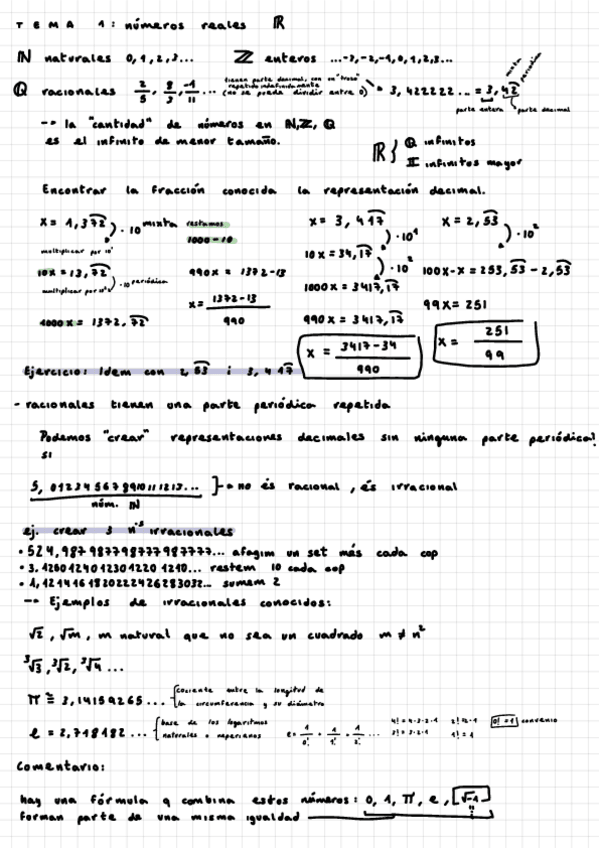 TEMA 1: números reales ℝ
ℕ naturales 0, 1, 2, 3... ℤ enteros ...-3, -2, -1, 0, 1, 2, 3...
ℚ racionales 2/5, 8/3, -1/11 ... tienen parte decimal, con un "trozo" repetido indefinidamente (no se puede dividir entre 0) 3,422222... = 3,42 mixta periódica
parte entera parte decimal
--> la "cantidad" de números en ℕ, ℤ, ℚ
es el infinito de menor tamaño.
ℝ { ℚ infinitos
𝕀 infinitos mayor
Encontrar la fracción conocida la representación decimal.
x = 1,372 ) · 10 mixta
multiplicar por 10¹
10x = 13,72 ) · 10 periódica
1000x = 1372,72
restamos
1000 - 10
990x = 1372-13
x = 1372-13 / 990
x = 3,417 ) · 10¹
10x = 34,17 ) · 10²
1000x = 3417,17
990x = 3417,17
x = 3417-34 / 990
x = 2,53 ) · 10²
100x-x = 253,53 - 2,53
99x = 251
x = 251 / 99
Ejercicio: Idem con 2,53 i 3,417
- racionales tienen una parte periódica repetida
Podemos "crear" representaciones decimales sin ninguna parte periódica?
si
5,012345678910111213... ]--> no és racional, és irracional
núm. ℕ
ej. crear 3 nºs irracionales
• 524,987987798777987777... afegim un set més cada cop
• 3,1260124012301220 1210... restem 10 cada cop
• 1,1214161820222426283032... sumem 2
--> Ejemplos de irracionales conocidos:
√2, √m, m natural que no sea un cuadrado m ≠ n²
³√3, ³√2, ³√4 ...
π ≅ 3,14159265... { cociente entre la longitud de la circunferencia y su diámetro
e = 2,718182... { base de los logaritmos naturales o neperianos e = 1/0! + 1/1! + 1/2! ... 4! = 4·3·2·1 2! = 2·1 0! = 1 convenio
3! = 3·2·1 1! = 1
Comentario:
hay una fórmula q combina estos números: 0, 1, π, e, √-1
forman parte de una misma igualdad